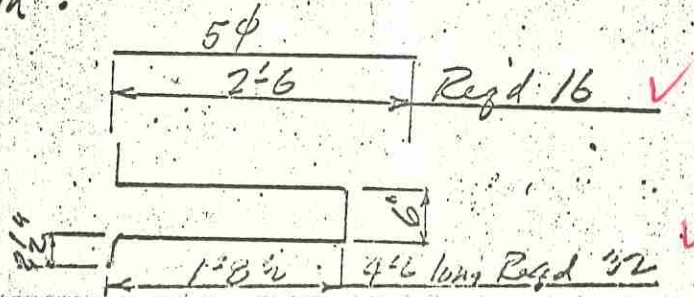 5ϕ
2'-6 Req'd 16
6"
2½"
1'-8½ 4'-6 long Req'd 32